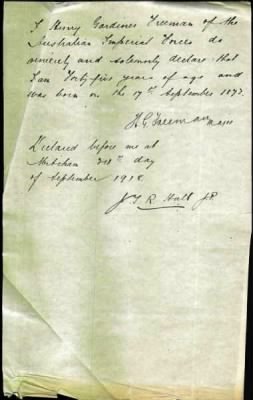 I Henry Gardiner Freeman of the
Australian Imperial Forces do
sincerely and solemnly declare that
I am Forty-five years of age and
was born on the 17th September 1873.
H G Freeman
Declared before me at
Mitcham day
of September 1918
R Holt J.P.